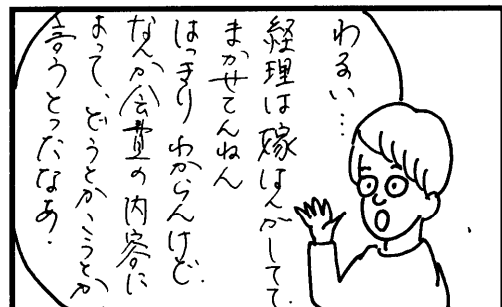 わるい…
経理は嫁はんがしてて、
まかせてんねん
はっきりわからんけど、
なんか会費の内容に
よって、どうとかこうとか
言うとったなあ。